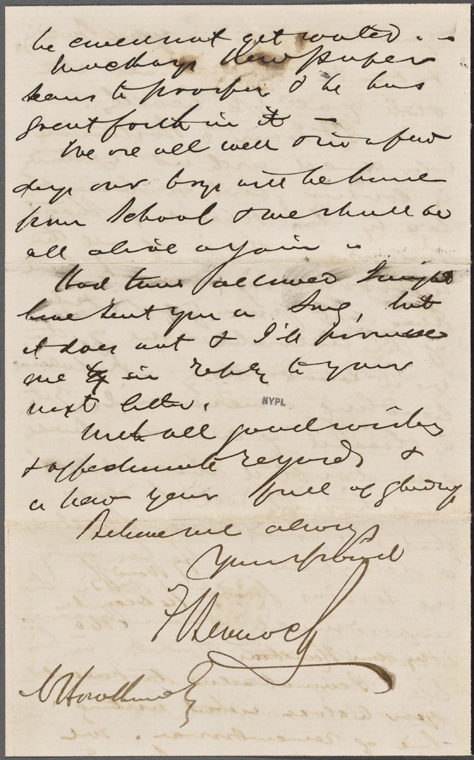 he cannot get
Mackays Newspaper
seems to prosper & he has
great faith in it —
We are all well & in a few
days our boys will be home
from School & we shall be
all alive again
Had time allowed I might
have sent you a Song, but
it does not & I'll promise
one in reply to your
next letter.
NYPL
With all good wishes
& affectionate regards &
a new year full of glory
Believe me always
Your friend
F Bennoch
N Hawthorne Esq